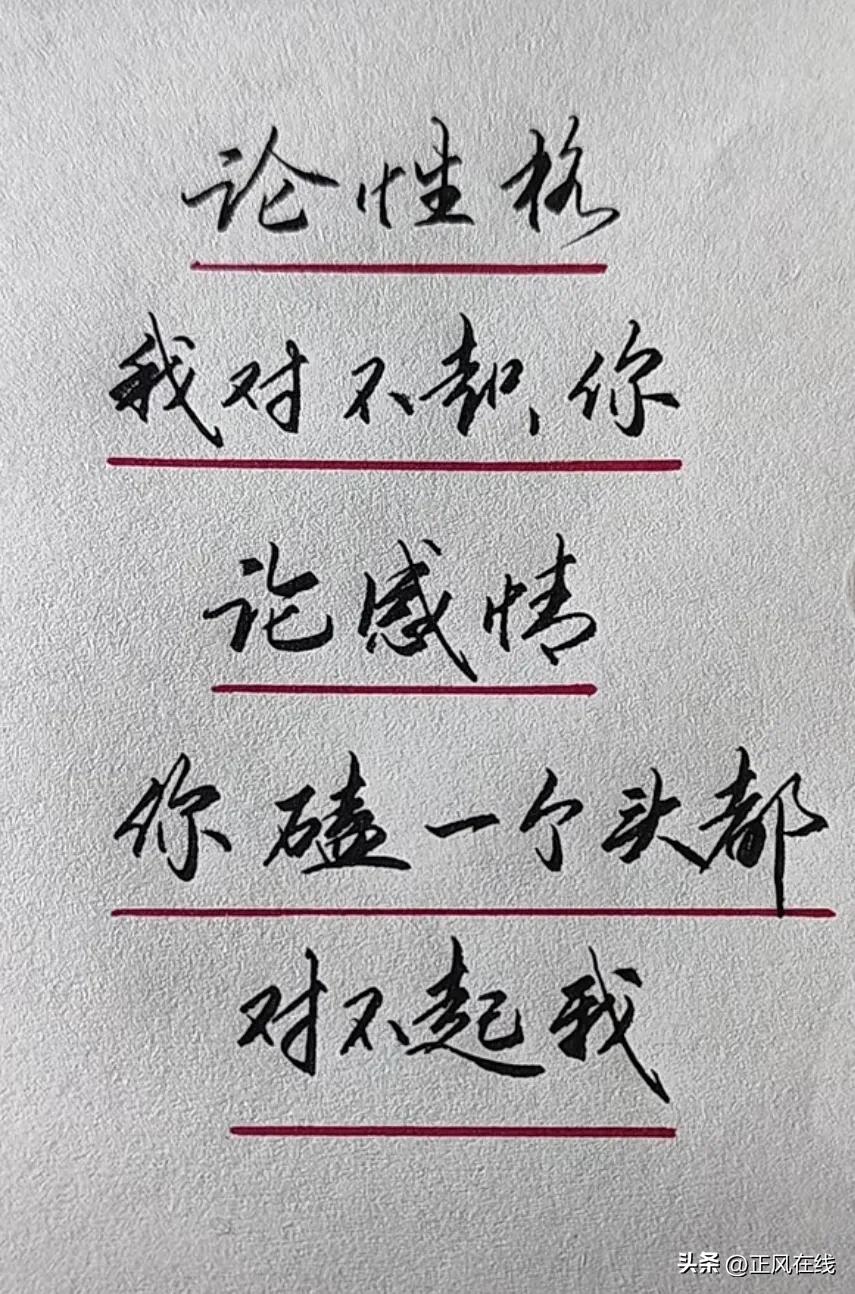 论性格
我对不起你
论感情
你磕一个头都
对不起我
头条 @正风在线